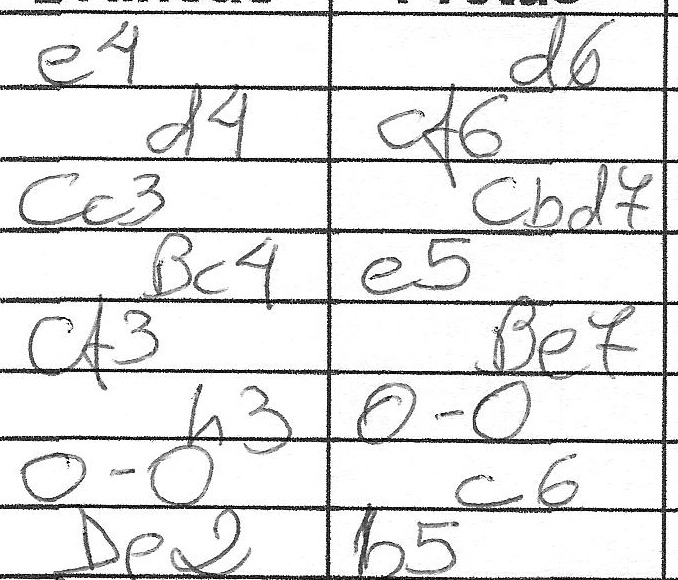 e4 d6
d4 Cf6
Cc3 Cbd7
Bc4 e5
Cf3 Be7
h3 0-0
0-0 c6
De2 b5